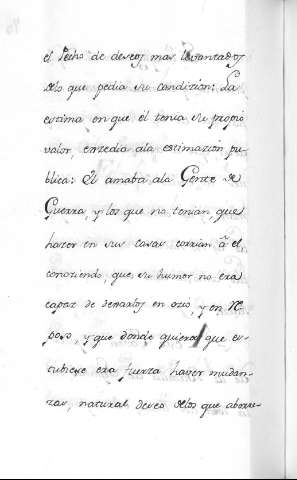 el Pecho de deseos mas levantados
delo que pedia su condizion: La
estima en que èl tenia su propio
valor, exzedia ala estimazion pu-
blica: El amaba ala Gente de
Guerra, y los que no tenian, que
hazer en sus casas corrian â el
conoziendo, que su humor no era
capaz de dexarlos en ozio, y en Re-
poso, y que donde quiera que es-
tubiese era fuerza hazer mudan-
zas, natural deseo delos que aborre-